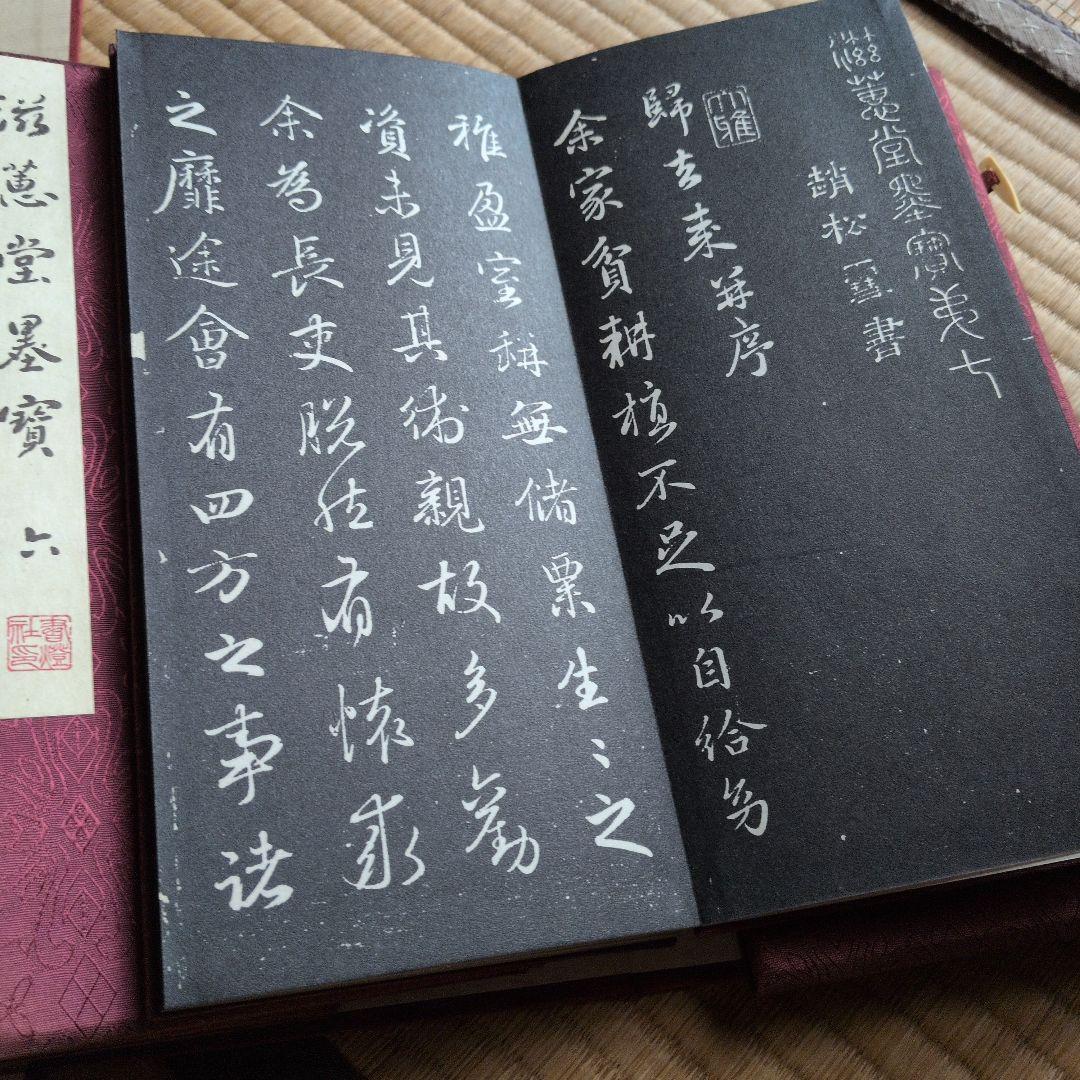 滋蕙堂墨寶第七
趙松雪書
大雅
歸去來并序
余家貧耕植不足以自給幼
稚盈室缾無儲粟生〻之
資未見其術親故多勸
余為長吏脫然有懷求
之靡途會有四方之事諸
滋蕙堂墨寶 六
書燈
社印